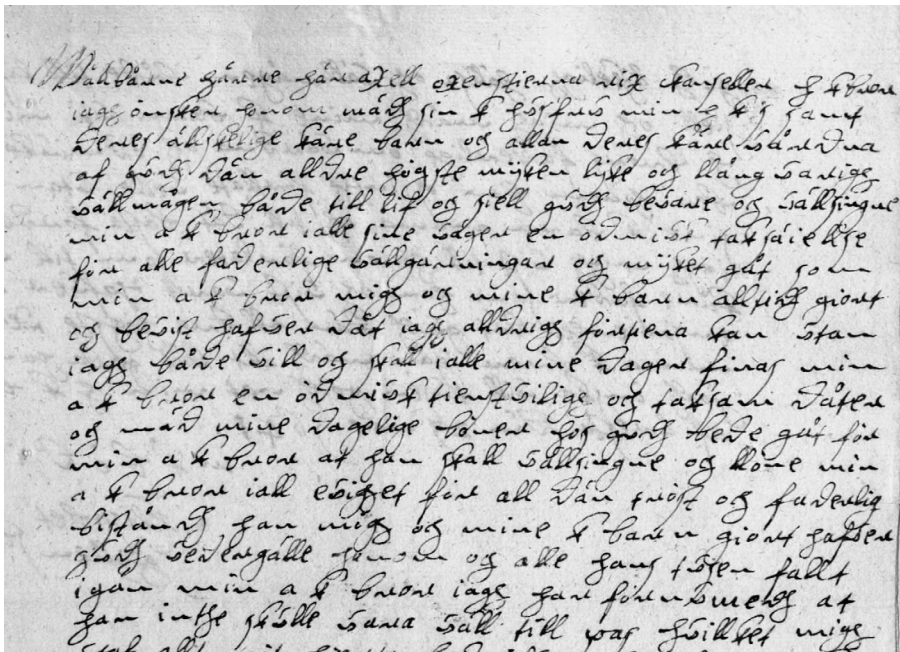 Wälbårne härre här axell oxenstierna rix kansseller h k bror
iagh önsker honom mädh sin k husfru min h k s samt
deres älskelige käre barn och allan deres käre vårdna
af gudh dän alldre högste myken lyke och llångvarigh
vällmågen både till lif och siell gudh bevare och vällsigne
min a k bror i alle sine väger en ödmiuk taksäielse
för alle faderlige vällgärningar och myket gåt som
min a k bror migh och mine k barn alltidh giort
och bevist hafver dät iagh alldrigh förtiena kan utan
iagh både vill och skall i alle mine dager finas min
a k bror en ödmiuk tienstvilige och taksam dåter
och mäd mine dagelige böner hos gudh bede gåt för
min a k bror at han skall vällsingne och llöne min
a k bror i all evighet för all dän tröst och faderlig
biståndh han migh och mine k barn giort hafver
gudh vedergälle honom och alle hans tusen fallt
igän min a k bror iagh har förnumedh at
han inthe skulle vara väll till pas hvilket migh